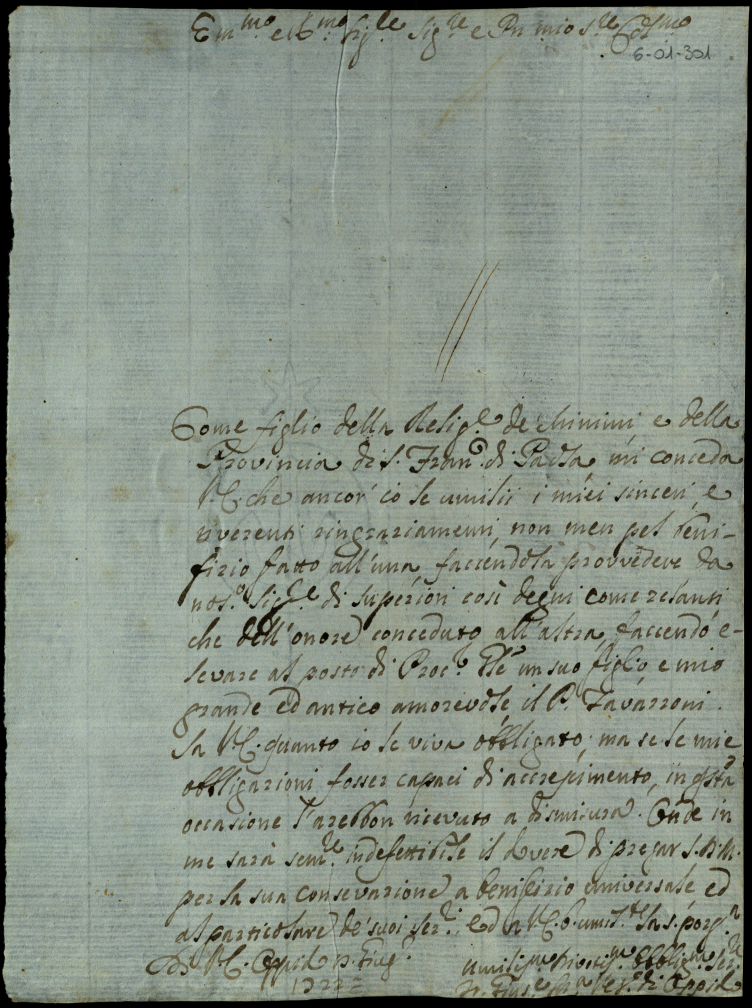 Em.mo e R.mo Sig.re Sig.re e Pn mio s.re Col.mo
6-01-301
Come figlio della Relig.e de Minimi, e della
Provincia di S. Fran.o di Paola mi conceda
V.E. che ancor' io le umilii i miei sinceri, e
riverenti ringraziamenti, non men pel beni-
fizio fatto all'una facendola provvedere da
nos.o Sig.re di superiori così degni come zelanti
che dell'onore conceduto all'altra, facendo e-
levare al posto di Proc.r Gle un suo figlio e mio
grande ed antico amorevole il P. Zavarroni.
Sa V.E. quanto io le viva obbligato; ma se le mie
obbligazioni fosser capaci di accrescimento, in qsta
occasione l'arebbon ricevuto a dismisura. Onde in
me sarà sem.e indefettibile il dovere di pregar S.D.M.
per la sua conservazione a benifizio universale ed
al particolare de' suoi ser.i, ed a V.E. umil.e la s. porp.a
Di V.E. Oppido 12 Giug.o
1733
umiliss.mo divotiss.mo obblig.mo ser.e
Ves.o di Oppido